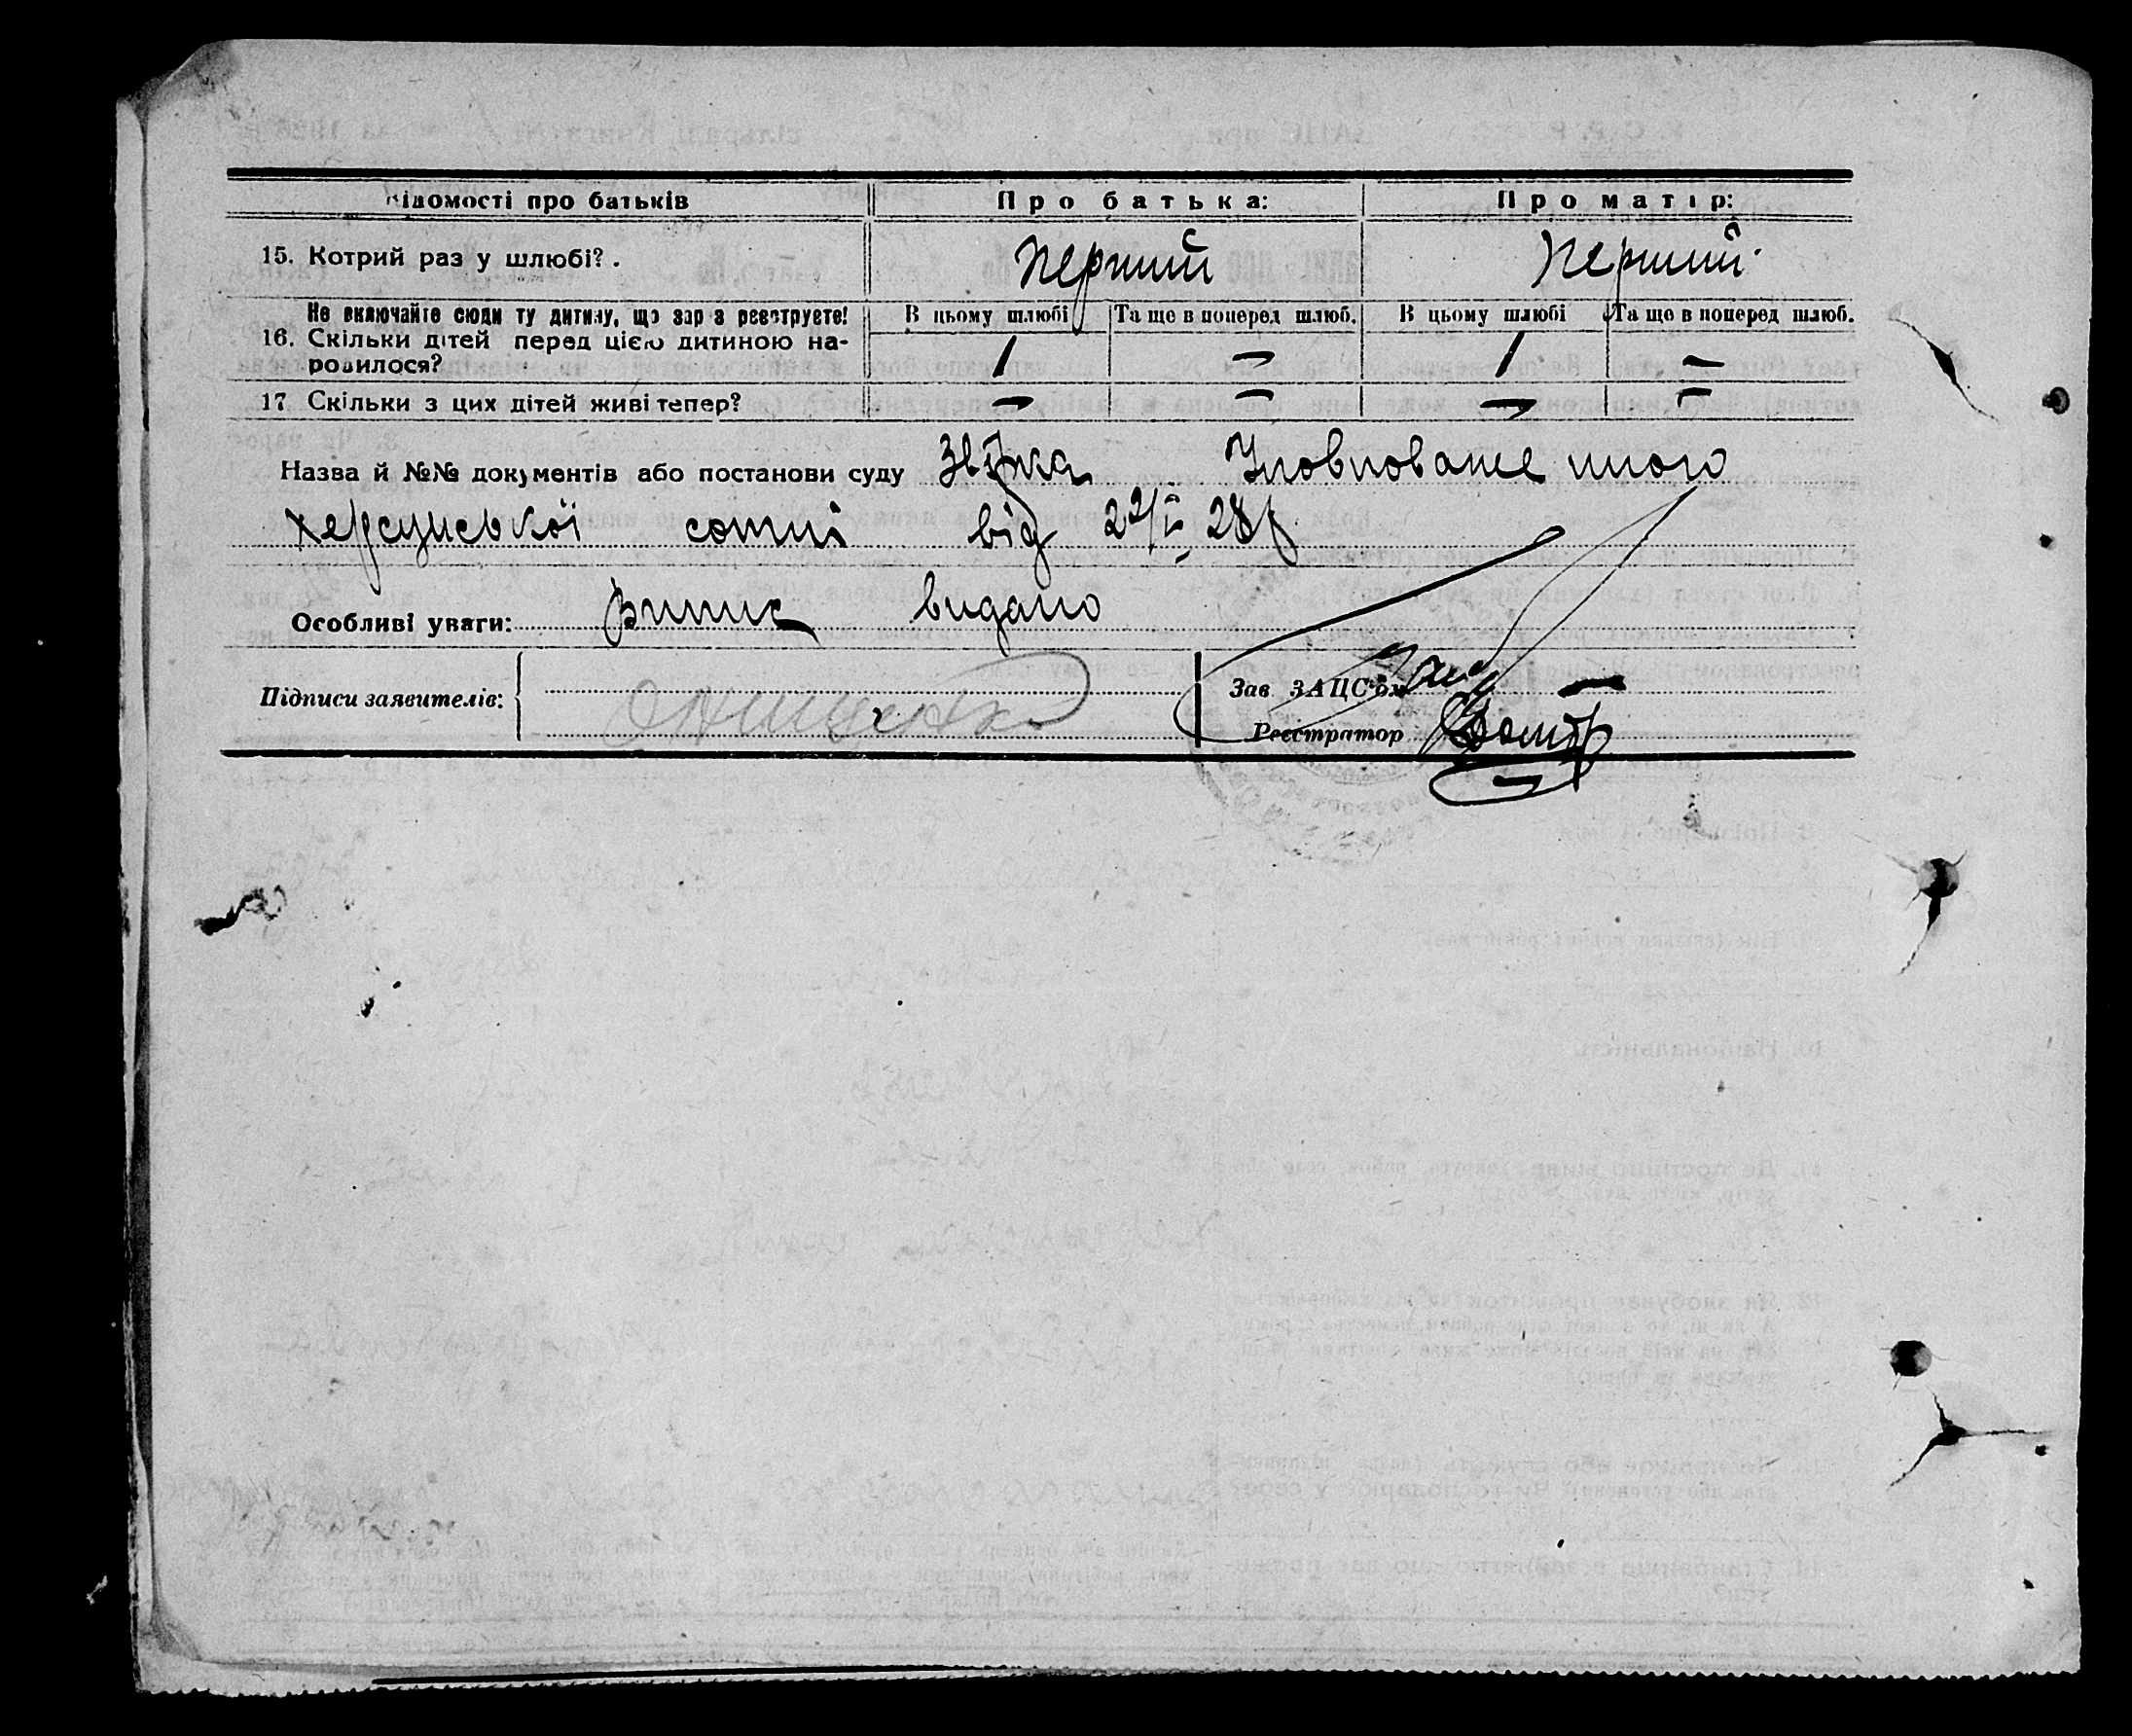 Відомості про батьків Про батька: Про матір:
15. Котрий раз у шлюбі? . перший перший
Не включайте сюди ту дитину, що зараз реєструєте! В цьому шлюбі Та ще в поперед шлюб. В цьому шлюбі Та ще в поперед шлюб.
16. Скільки дітей перед цією дитиною на-
родилося? 1 — 1 —
17 Скільки з цих дітей живі тепер? — — — —
Назва й №№ документів або постанови суду Звістка Уповноваженого
херсунської сотні від 22/ 28р
Особливі уваги: Випис видано
Підписи заявителів: Онищенко
Зав ЗАЦС'ом
Реєстратор